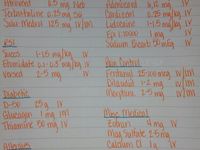 Atrovent 0.5 mg Neb
Terbutaline 0.25 mg SQ
Solu Medrol 125 mg IV/IM
RSI
Succs 1-1.5 mg/kg IV
Etomidate 0.1-0.3 mg/kg IV
Versed 2-5 mg IV
Diabetic
D-50 25 g IV
Glucagon 1 mg IM
Thiamine 50 mg IV
Cardizem 0.25 mg/kg IV
Lidocaine 1-1.5 mg/kg IV
Epi 1:10000 1 mg IV
Sodium Bicarb 50 mEq
Pain Control
Fentanyl 25-100 mcg IV/IM
Dilaudid 1-2 mg IV
Morphine 2-5 mg IV/IM
Misc Medical
Zofran 4 mg IV
Mag Sulfate 2-5 mg
Calcium Cl 1 g IV